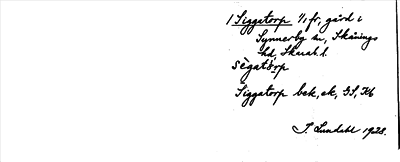 1 Siggatorp 1/1 fr, gård i
Synnerby sn, Skånings
hd, Skarab. l.
sègatòrp
Siggatorp bek, ek, GS, Hb
J. Lundahl 1928.